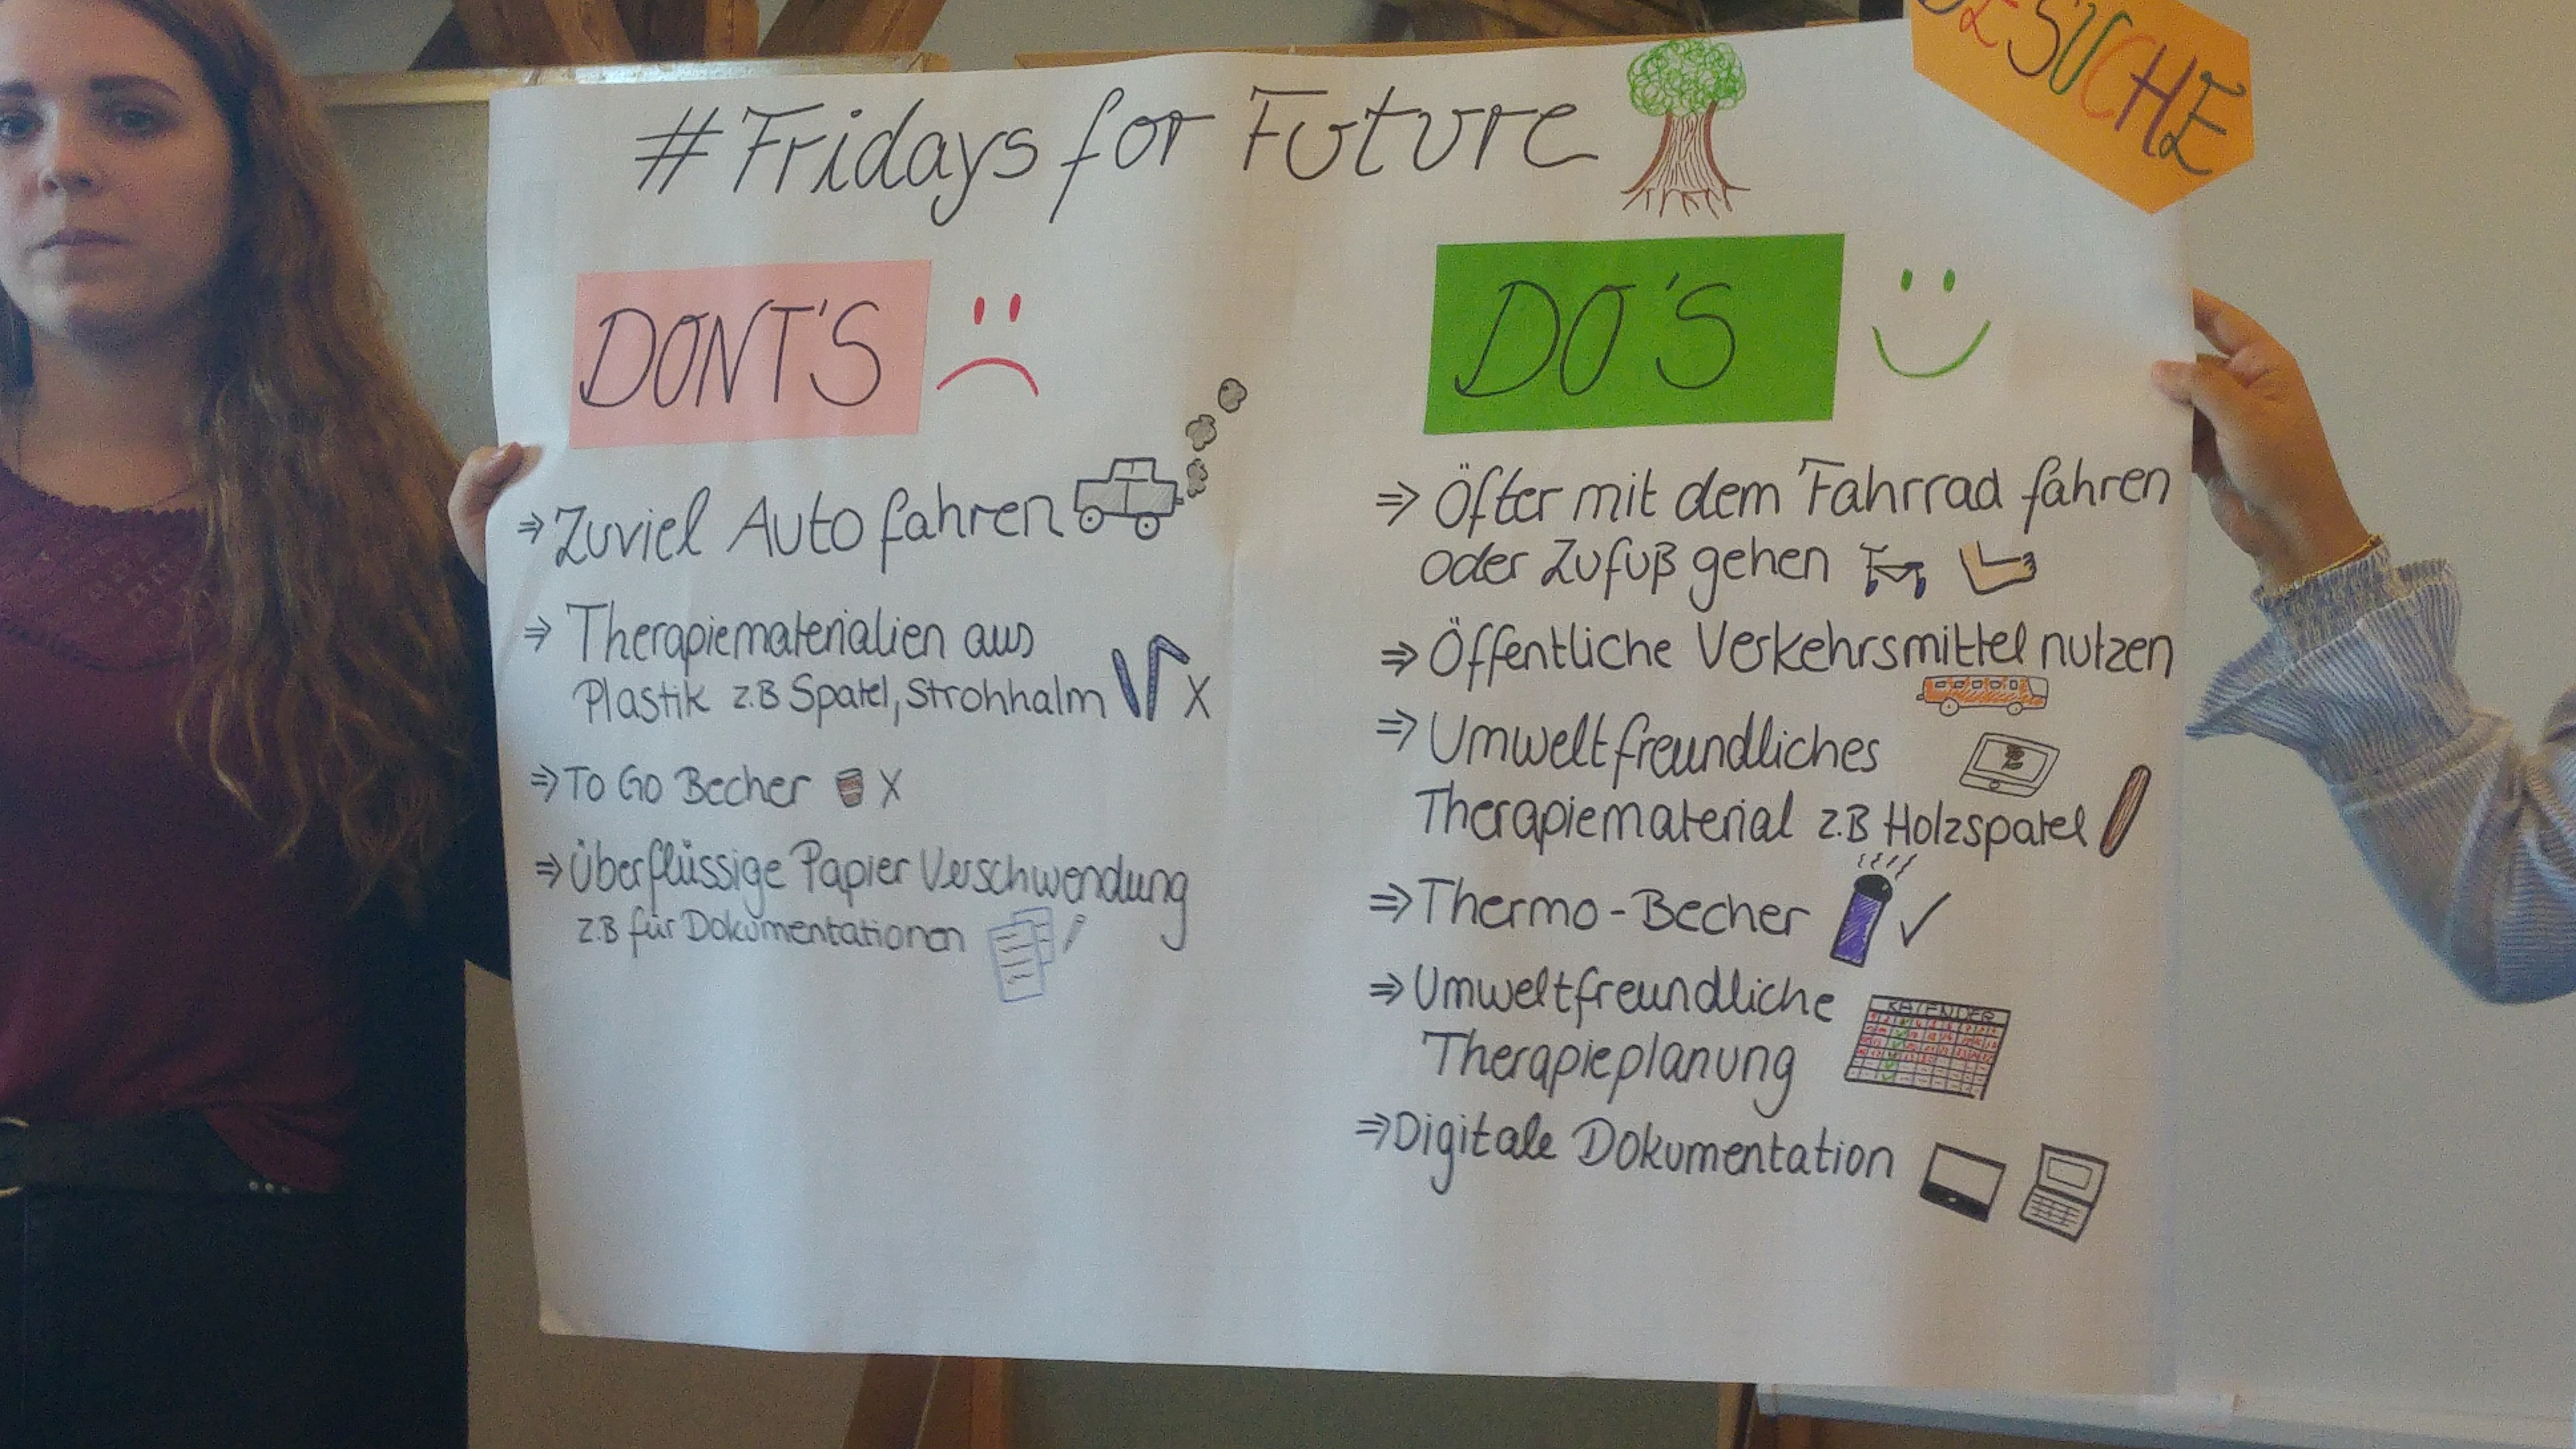 #Fridays for Future
BESUCHE
DONT'S
⇒ Zuviel Auto fahren
⇒ Therapiematerialien aus
Plastik z.B Spatel, Strohhalm X
⇒ To Go Becher X
⇒ Überflüssige Papier Verschwendung
z.B für Dokumentationen
DO'S
⇒ Öfter mit dem Fahrrad fahren
oder Zufuß gehen
⇒ Öffentliche Verkehrsmittel nutzen
⇒ Umweltfreundliches
Therapiematerial z.B Holzspatel
⇒ Thermo-Becher ✓
⇒ Umweltfreundliche
KALENDER
Therapieplanung
⇒ Digitale Dokumentation